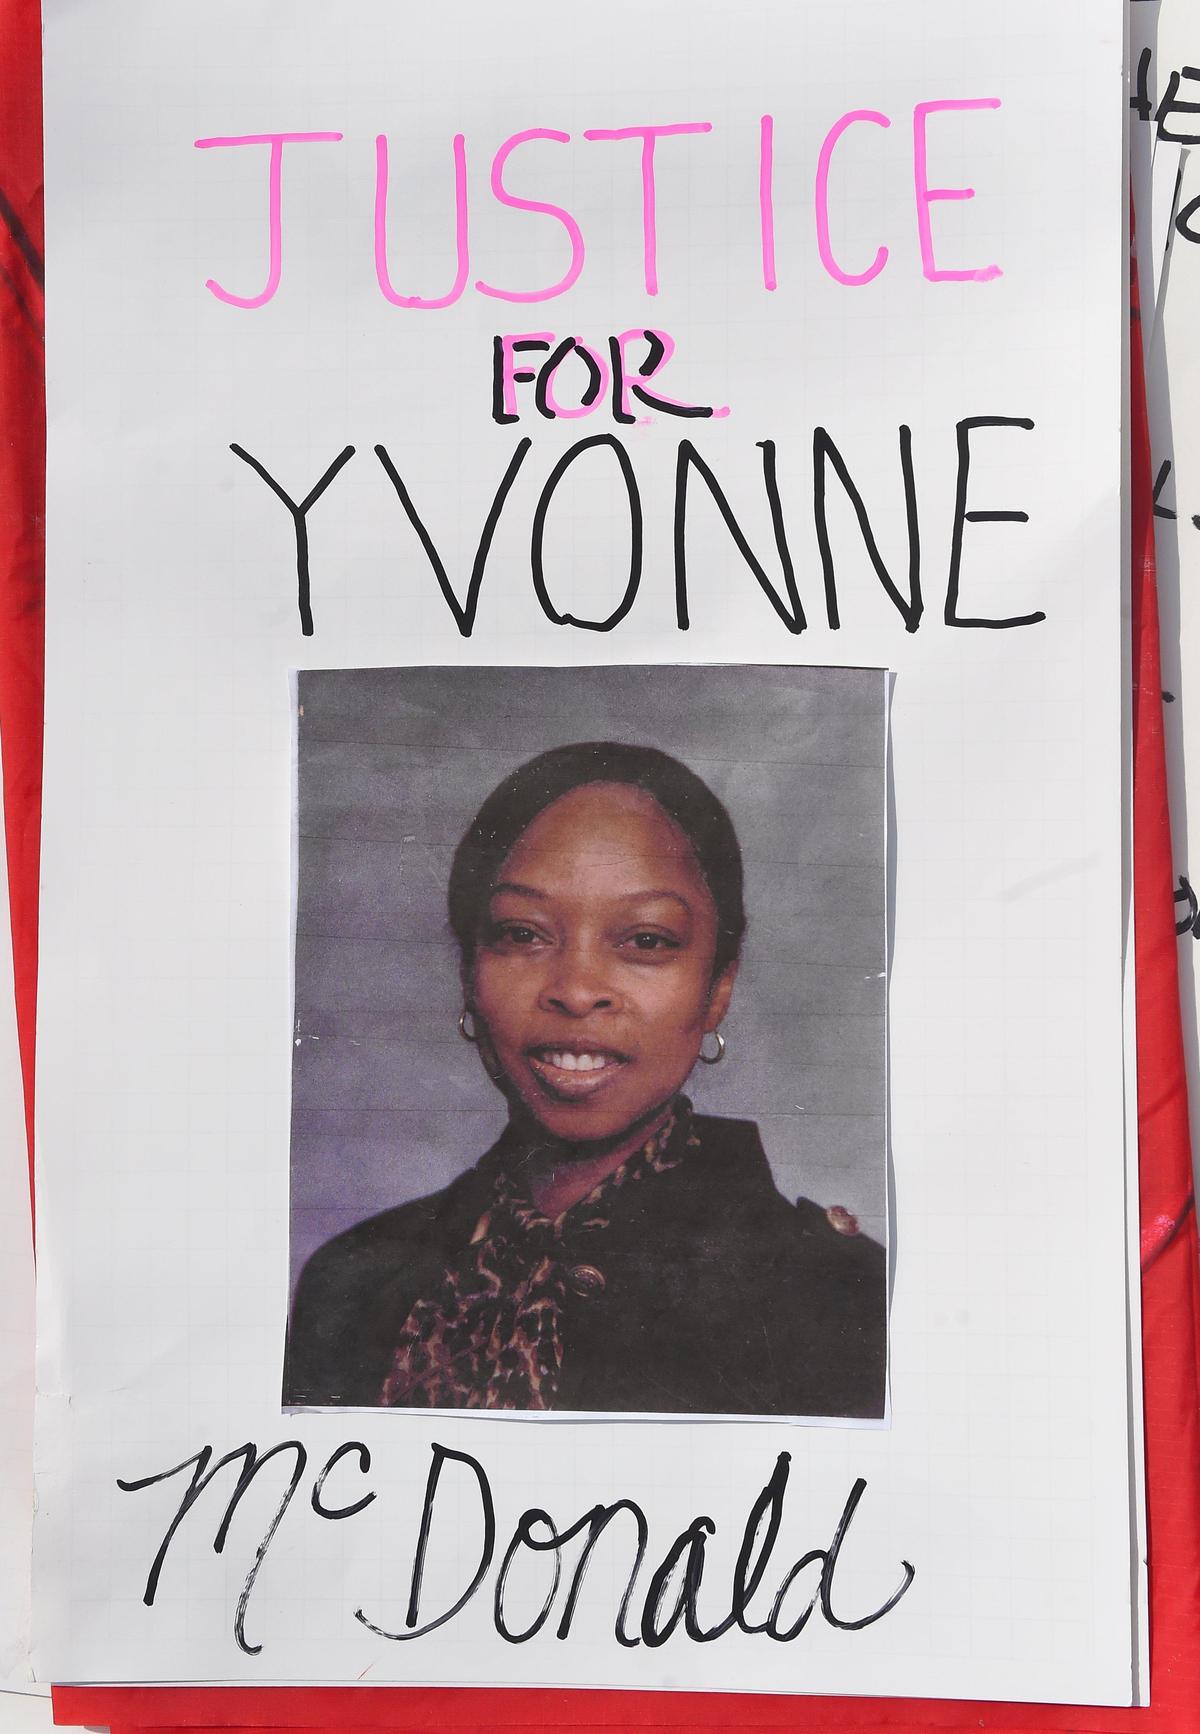 JUSTICE
FOR
YVONNE
McDonald